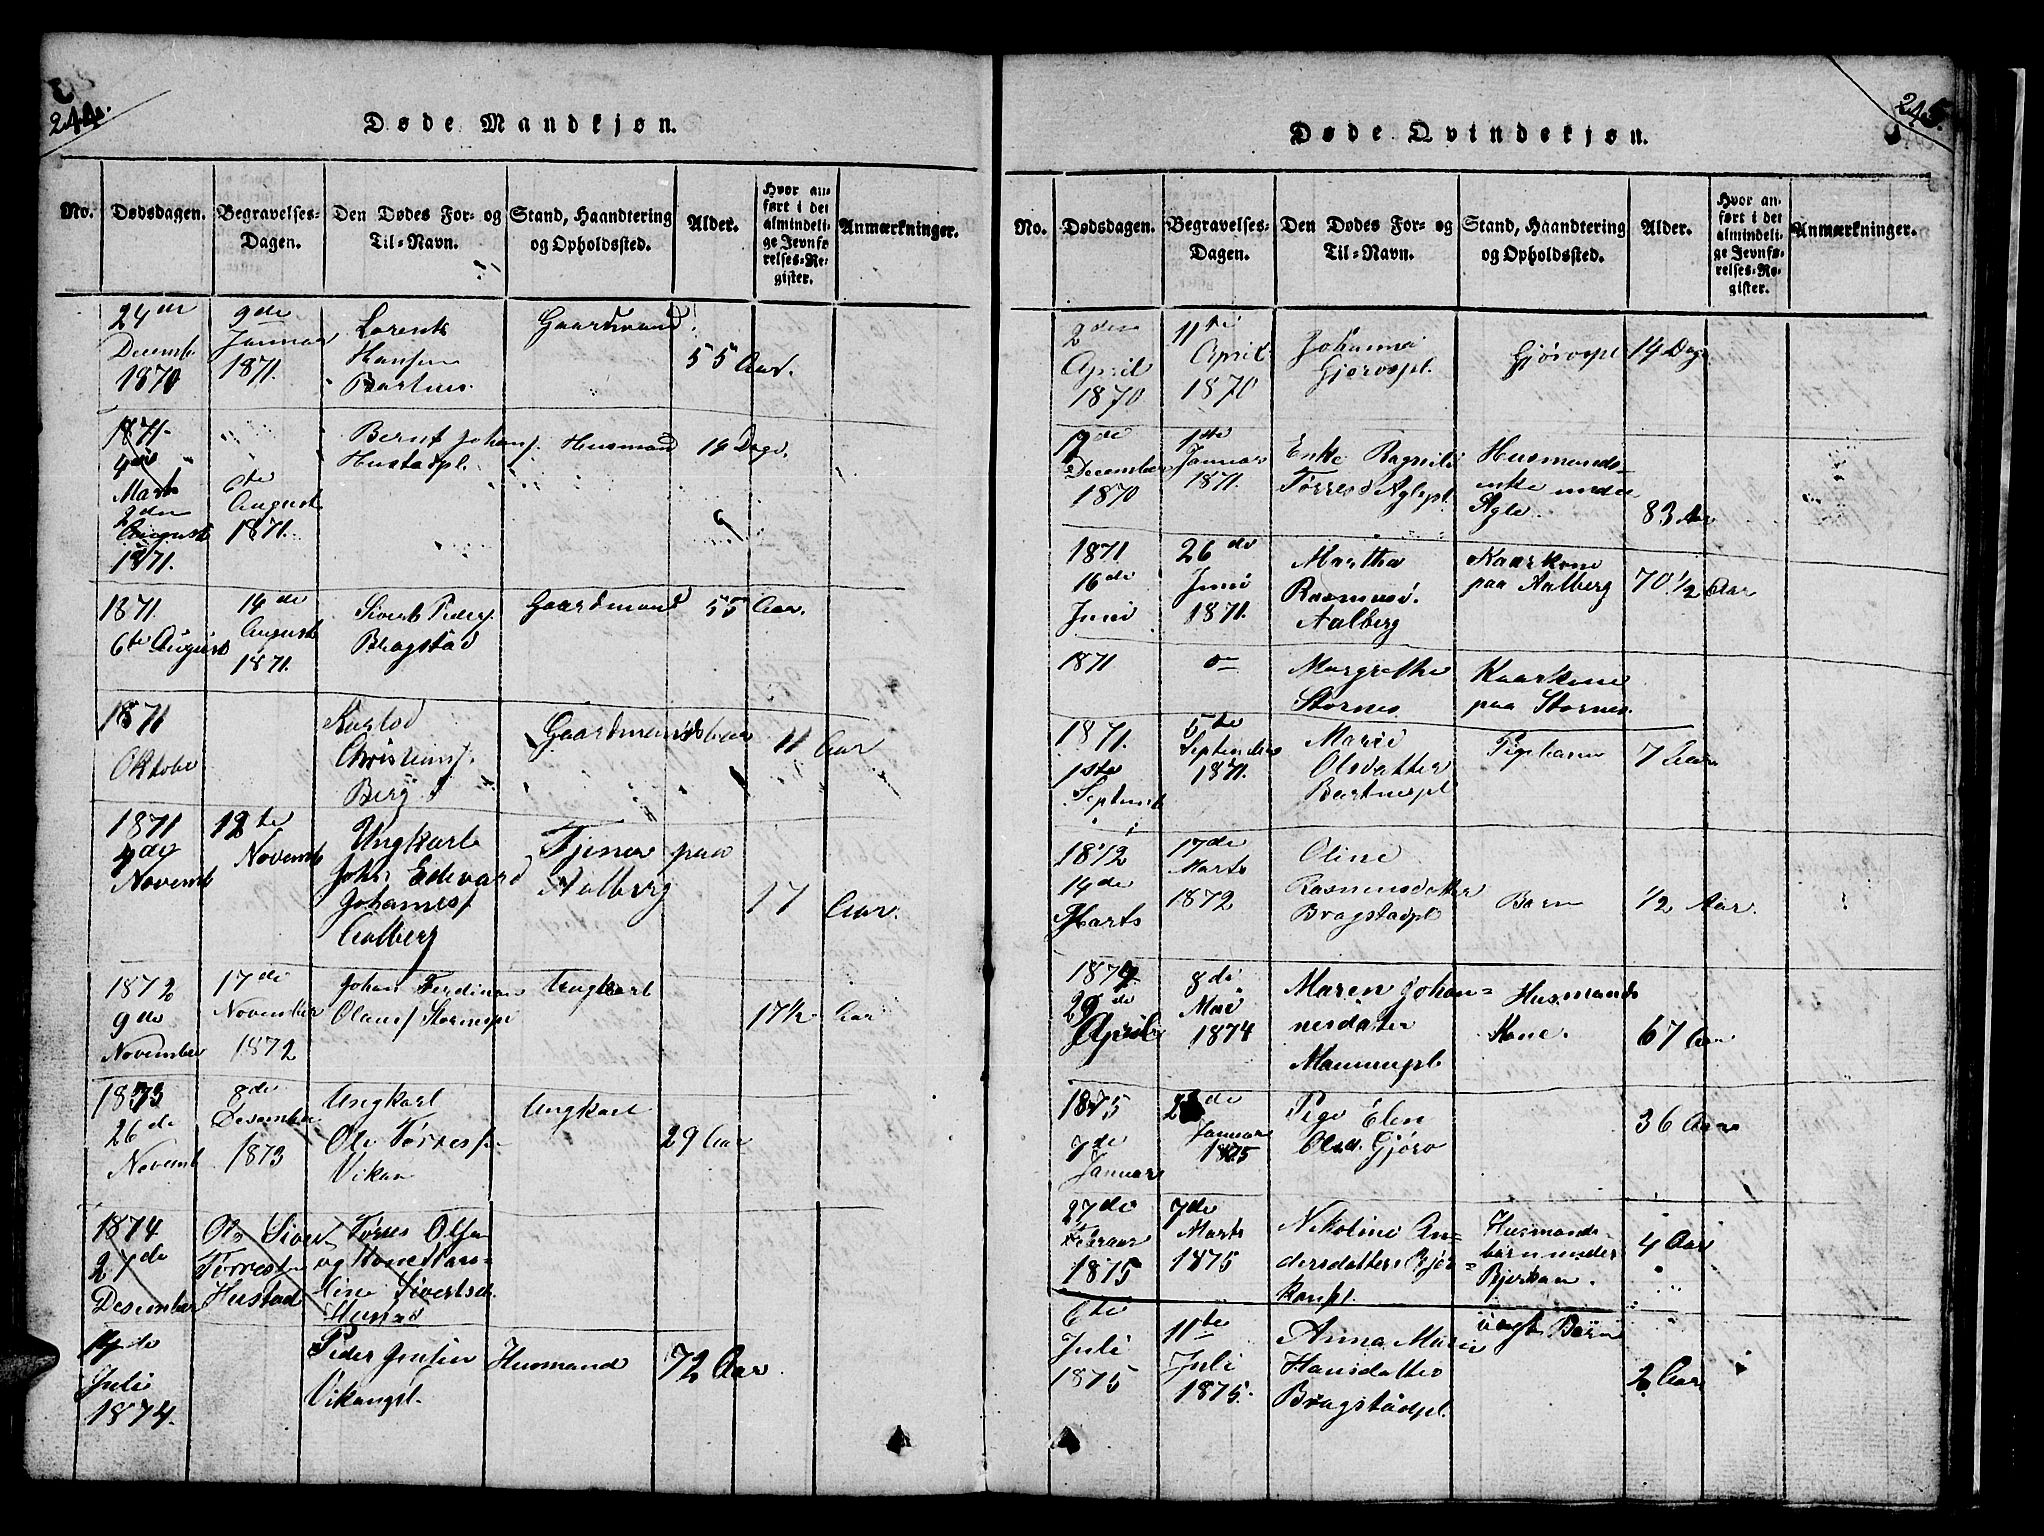 244.
Døde Mandkjøn.
No.
Dødsdagen.
Begravelses-
Dagen.
Den Dødes For- og
Til-Navn.
Stand, Haandtering
og Opholdssted.
Alder.
Hvor an-
ført i det
almindeli-
ge Jevnfø-
relses-Re-
gister.
Anmærkninger.
24de
Decemb
1870
9de
Januar
1871.
Lorents
Hansen
Bartnes
Gaardmand
55 Aar.
1871
4de
Marts
2den
August
1871.
6te
August
1871.
Bernt Johans.
Hustadpl.
Husmad
14 Dage.
1871.
6te August
14de
August
1871.
Sivert Peders.
Bragstad
Gaardmand
55 Aar.
1871
Oktober
Christians.
Berg.
Gaardmands
11 Aar
1871
4de
Novemb
12te
Novemb
Ungkarl
John Edevard
Johannes.
Aalberg
Tjener paa
Aalberg
17 Aar.
1872
9de
November
17de
November
1872
Johan Ferdinan
Olaus. Stornespl
Ungkarl
17½ Aar
1873
26de
Novemb
8de
Desember
1873
Ungkarl
Ole Tørres.
Vikan
Ungkarl
29 Aar
1874
27de
Desember
Ole Sivert
Torresen
Hustad
Tørres Olsen
og Kone
line Sivertsd.
14de
Juli
1874.
Peder Jensen
Vikanpl.
Husmand
72 Aar
245.
Døde Qvindekjøn.
No.
Dødsdagen.
Begravelses-
Dagen.
Den Dødes For- og
Til-Navn.
Stand, Haandtering
og Opholdssted.
Alder.
Hvor an-
ført i det
almindeli-
ge Jevnfø-
relses-Re-
gister.
Anmærkninger.
2den
April
1870
11te
April
1870
Johanna
Gjørvspl.
Gjørvspl
14 Dage
19de
December
1870
1ste
Januar
1871.
Enke Ragnild
Tørresd Aglepl.
Husmands-
enke under
Agle.
83 Aar
1871
16de
Juni
26de
Juni
1871.
Martha
Rasmusd.
Aalberg
Kaarkone
paa Aalberg
70½ Aar
1871
Margrethe
Stornes
Kaarkone
paa Stornes.
1871.
1ste
Septemb
5te
September
1871.
Marie
Olsdatter
Bartnespl
Pigebarn
7 Aar
1872
14de
Marts
17de
Marts
1872
Oline
Rasmusdatter
Bragstadpl
Barn
½ Aar.
1874
29de
April
8de
Mai
1874
Maren Johan-
nesdater
Mannenspl.
Husmands
Kone.
67 Aar
1875
7de
Januar
de
Januar
1875
Pige Elen
Olsd. Gjørv
36 Aar
27de
Februar
1875
7de
Marts
1875
Nikoline An-
dersdatter Bjør-
kanpl.
Husmands
barn under
Bjerkan.
4 Aar
6te
Juli
1875
11te
Juli
1875.
Anna Marie
Hansdatter
Bragstadpl.
uægt Barn
2 Aar